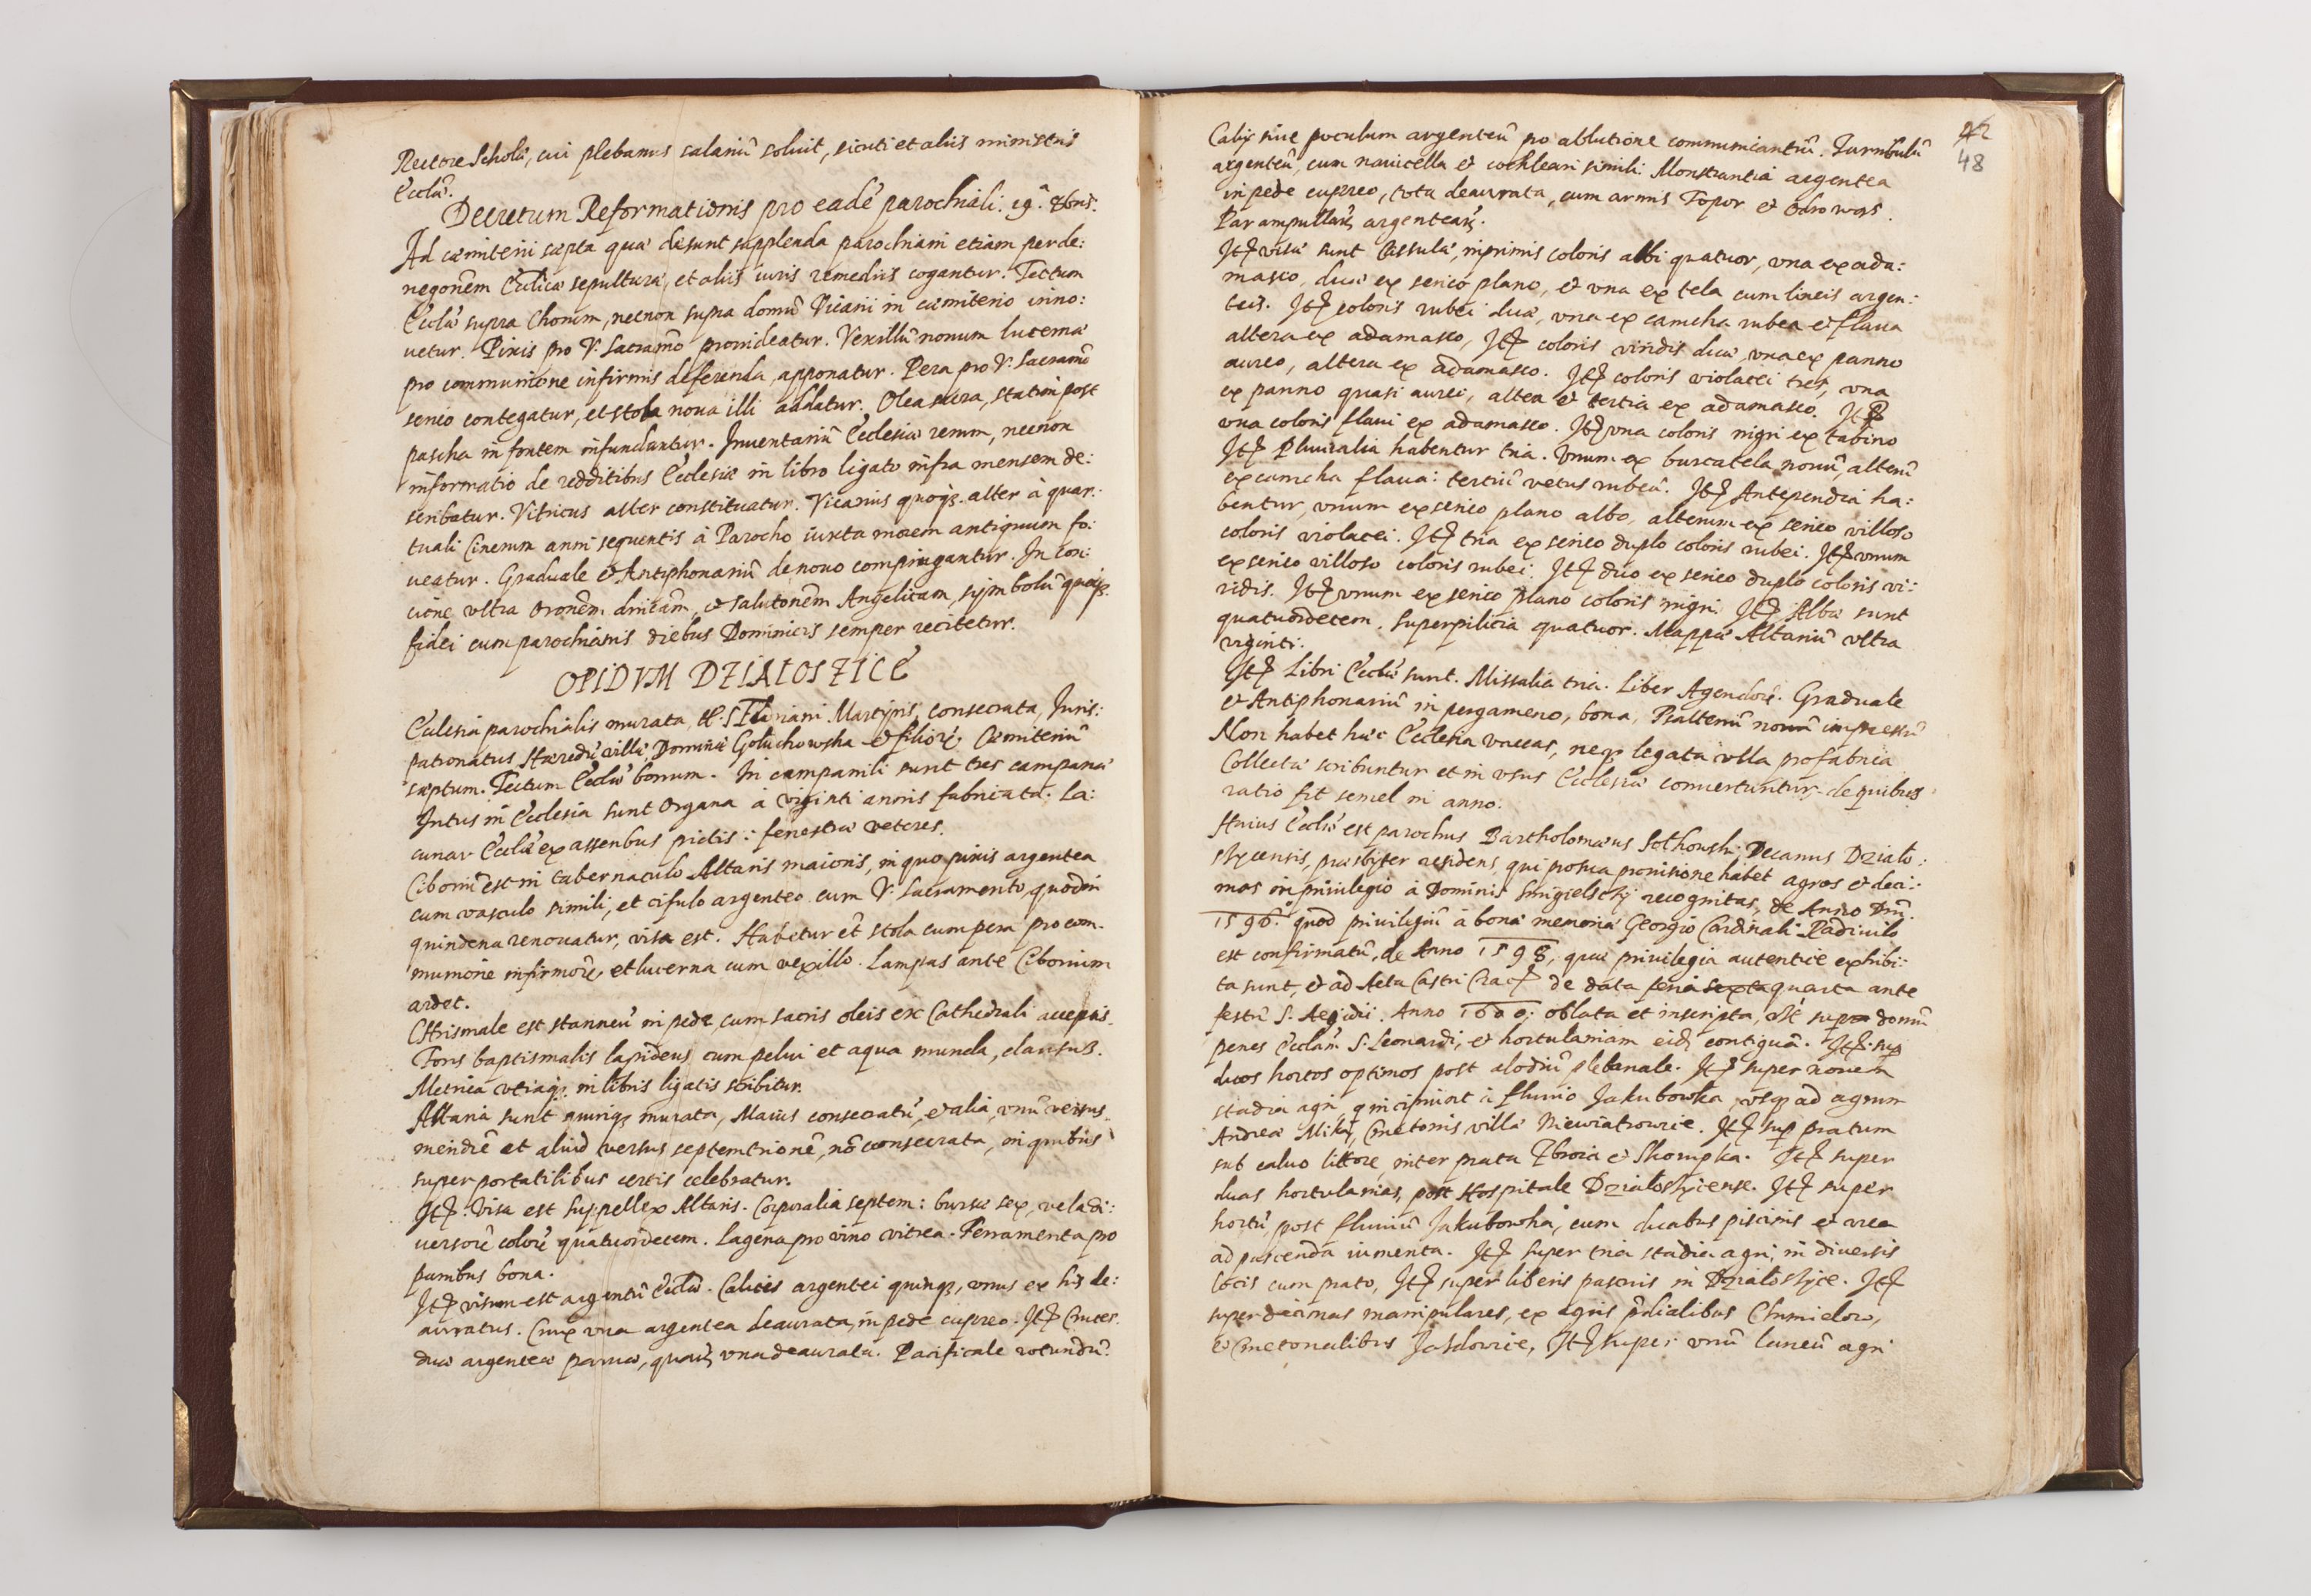 Rectore Scholæ, cui plebanus salariũ soluit, sicuti et aliis ministris
Eccliæ.
Decretum Reformationis pro eadẽ parochiali. 19. 8bris.
Ad cæmiterii sæpta quæ desunt supplenda parochiani etiam per de:
negonẽm Ecclicæ sepulturæ, et aliis iuris remediis cogantur. Tectum
Eccliæ supra Chorum, necnon supra domũ Vicarii in cæmiterio inno:
uetur. Pixis pro V. Sacramõ prouideatur. Vexillũ nouum lucernæ
pro communione infirmis deferenda, apponatur. Pera pro V. Sacramõ
serico contegatur, et stola noua illi addatur. Olea sacra, statim post
pascha in fontem infundantur. Inuentariũ Ecclesiæ rerum, necnon
informatio de redditibus Ecclesiæ in libro ligato infra mensem de:
scribatur. Vitricus alter constituatur. Vicarius quoq3 alter à quar:
tuali Cinerum anni sequentis à Parocho iuxta morem antiquum fo:
ueatur. Graduale et Antiphonariũ de nouo compingantur. In con:
cione vltra oronẽm dnicãm, et salutonẽm Angelicam, symbolũ quoq3
fidei cum parochianis diebus Dominicis semper recitetur.
OPIDVM DZIALOSZICE
Ecclesia parochialis murata, tt. S. Floriani Martyris, consecrata, Iuris:
patronatus Hæredũ villæ, Dominæ Goluchowska et filiorũ. Cæmiteriũ
sæptum. Tectum Eccliæ bonum. In campanili sunt tres campanæ
Intus in Ecclesia sunt Organa à viginti annis fabricata. La:
cunar Eccliæ ex asseribus pictis: fenestræ veteres.
Ciboriũ est in tabernaculo Altaris maioris, in quo pixis argentea
cum vasculo simili, et cifulo argenteo cum V. Sacramento, quod in
quindena renouatur, visa est. Habetur et stola cum pera pro com-
munione infirmorũ, et lucerna cum vexillo. Lampas ante Ciborium
ardet.
Chrismale est stanneũ in pede cum sacris oleis ex Cathedrali acceptis.
Fons baptismalis lapideus, cum pelui et aqua munda, clausus.
Metrica vtraq3 in libris ligatis scribitur.
Altaria sunt murata, Maius consecratũ, et alia, vnũ versus
meridiẽ et aliud versus septemtrionẽ, nõ consecrata, in quibus
super portatilibus certis celebratur.
Itẽ Visa est suppellex Altaris. Corporalia septem: bursæ sex, vela di:
uersorũ colorũ quatuordecem. Lagena pro vino vitrea. Ferramenta pro
panibus bona.
Itẽ visum est argentũ Eccliæ. Calices argentei quinq3, vnus ex his de:
auratus. Crux vna argentea deaurata, in pede cupreo. Itẽ Cruces
duæ argenteæ paruæ, quarũ vna deaurata. Pacificale rotundũ.
42
48
Calix siue poculum argenteũ pro ablutione communicantiũ. Turribulũ
argenteũ, cum nauicella et cochleari simili. Monstrantia argentea
in pede cupreo, tota deaurata, cum armis Topor et Odrowąs.
Par ampullarũ argentearũ.
Itẽ visæ sunt Cassulæ, inprimis coloris albi quatuor, vna ex ada:
masco, duæ ex serico plano, et vna ex tela cum lineis argen:
teis. Itẽ coloris rubei duæ, vna ex camcha rubea et flaua
altera ex adamasco, Itẽ coloris viridis duæ, vna ex panno
aureo, altera ex adamasco. Itẽ coloris violacei tres, vna
ex panno quasi aurei, altera et tertia ex adamasco. Itẽ
vna coloris flaui ex adamasco. Itẽ vna coloris nigri ex tabino
Itẽ Pluuialia habentur tria. Vnum ex burcatela nouũ, alterũ
ex camcha flaua: tertiũ vetus rubeũ. Itẽ Antependia ha:
bentur, vnum ex serico plano albo, alterum ex serico villoso
coloris violacei. Itẽ tria ex serico duplo coloris rubei. Itẽ vnum
ex serico villoso coloris rubei. Itẽ duo ex serico duplo coloris vi:
ridis. Itẽ vnum ex serico plano coloris nigri. Itẽ Albæ sunt
quatuordecem. Superpilicia quatuor. Mappæ Altariũ vltra
viginti.
Itẽ Libri Eccliæ sunt. Missalia tria. Liber Agendorũ. Graduale
et Antiphonariũ in pergameno, bona, Psalteriũ nouũ impressũ
Non habet hæc Ecclesia vaccas, neq3 legata vlla pro fabrica
Collectæ scribuntur et in vsus Ecclesiæ conuertuntur, de quibus
ratio fit semel in anno.
Huius Eccliæ est parochus Bartholomæus Sothowski Decanus Działo:
szycensis, præsbyter residens, qui pro sua prouisione habet agros et deci:
mas in priuilegio à Dominis recognitas, de Anno Dni.
1596. quod priuilegiũ à bonæ memoriæ Georgio Cardinali Radiuilo
est confirmatũ, de Anno 1598, quæ privilegia autentice exhibi:
ta sunt, et ad Acta Castri Crac. de data feria sexta quarta ante
festũ S. Aegidii. Anno 1600. oblata et inscripta, Et supra domũ
penes Eccliãm S. Leonardi, et hortulaniam eidẽ contiguã. Itẽ sup
duos hortos optimos post alodiũ plebanale. Itẽ super nouem
stadia agri, q incipiunt à fluuio Jakubowka, vsq3 ad agrum
Andreæ Mikị, Cmetonis villæ Niewiatrowice. Itẽ sup pratum
sub caluo littore, inter prata Zbroia et Skompka. Itẽ super
duas hortulanias, post Hospitale Działoszycense. Itẽ super
hortũ, post fluuiũ Jakubowka, cum duabus piscinis et area
ad pascenda iumenta. Itẽ super tria stadia agri, in diuersis
locis cum prato, Itẽ super liberis pascuis in Działoszyce. Itẽ
super decimas manipulares, ex agris prædialibus Chmielow,
et Cmetonalibus Jasdowice, Itẽ super vnũ laneũ agri